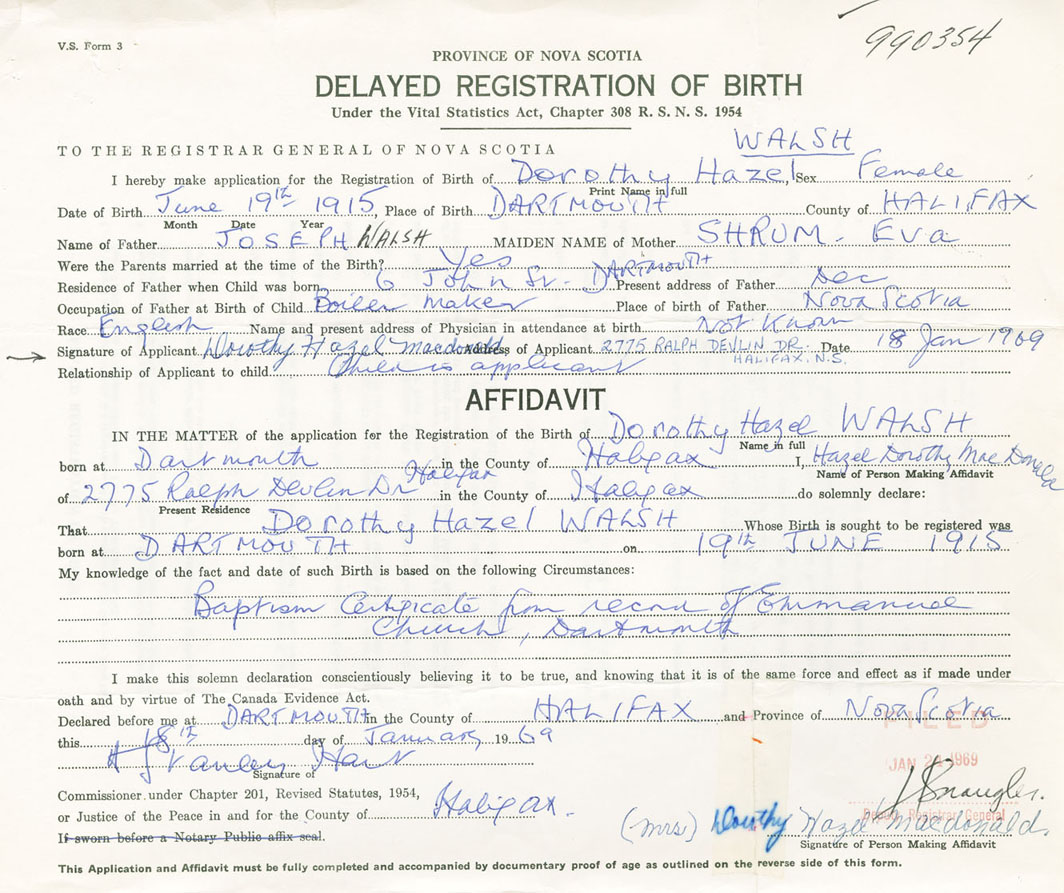 V.S. Form 3
990354
PROVINCE OF NOVA SCOTIA
DELAYED REGISTRATION OF BIRTH
Under the Vital Statistics Act, Chapter 308 R. S. N. S. 1954
TO THE REGISTRAR GENERAL OF NOVA SCOTIA
WALSH
I hereby make application for the Registration of Birth of Dorothy Hazel, Sex Female
Print Name in full
Date of Birth June 19th 1915, Place of Birth DARTMOUTH County of HALIFAX
Month Date Year
Name of Father JOSEPH WALSH MAIDEN NAME of Mother SHRUM - Eva
Were the Parents married at the time of the Birth? Yes
Residence of Father when Child was born 6 John St. - DARTMOUTH Present address of Father Dec
Occupation of Father at Birth of Child Boiler maker Place of birth of Father Nova Scotia
Race English Name and present address of Physician in attendance at birth Not Known
Signature of Applicant Dorothy Hazel Macdonald Address of Applicant 2775 RALPH DEVLIN DR. Date 18 Jan 1969
HALIFAX, N.S.
Relationship of Applicant to child Child is applicant
AFFIDAVIT
IN THE MATTER of the application for the Registration of the Birth of Dorothy Hazel WALSH
Name in full
born at Dartmouth in the County of Halifax I, Hazel Dorothy MacDonald
Name of Person Making Affidavit
of 2775 Ralph Devlin Dr Halifax in the County of Halifax do solemnly declare:
Present Residence
That Dorothy Hazel WALSH Whose Birth is sought to be registered was
born at DARTMOUTH on 19th JUNE 1915
My knowledge of the fact and date of such Birth is based on the following Circumstances:
Baptism Certificate from record of Emmanuel
Church, Dartmouth
I make this solemn declaration conscientiously believing it to be true, and knowing that it is of the same force and effect as if made under
oath and by virtue of The Canada Evidence Act.
Declared before me at DARTMOUTH in the County of HALIFAX and Province of Nova Scotia
FILED
this 18th day of January 1969
JAN 21 1969
Stanley Hart
Signature of
Commissioner under Chapter 201, Revised Statutes, 1954,
or Justice of the Peace in and for the County of Halifax.
Registrar General
If sworn before a Notary Public affix seal.
(Mrs) Dorothy Hazel Macdonald.
Signature of Person Making Affidavit
This Application and Affidavit must be fully completed and accompanied by documentary proof of age as outlined on the reverse side of this form.